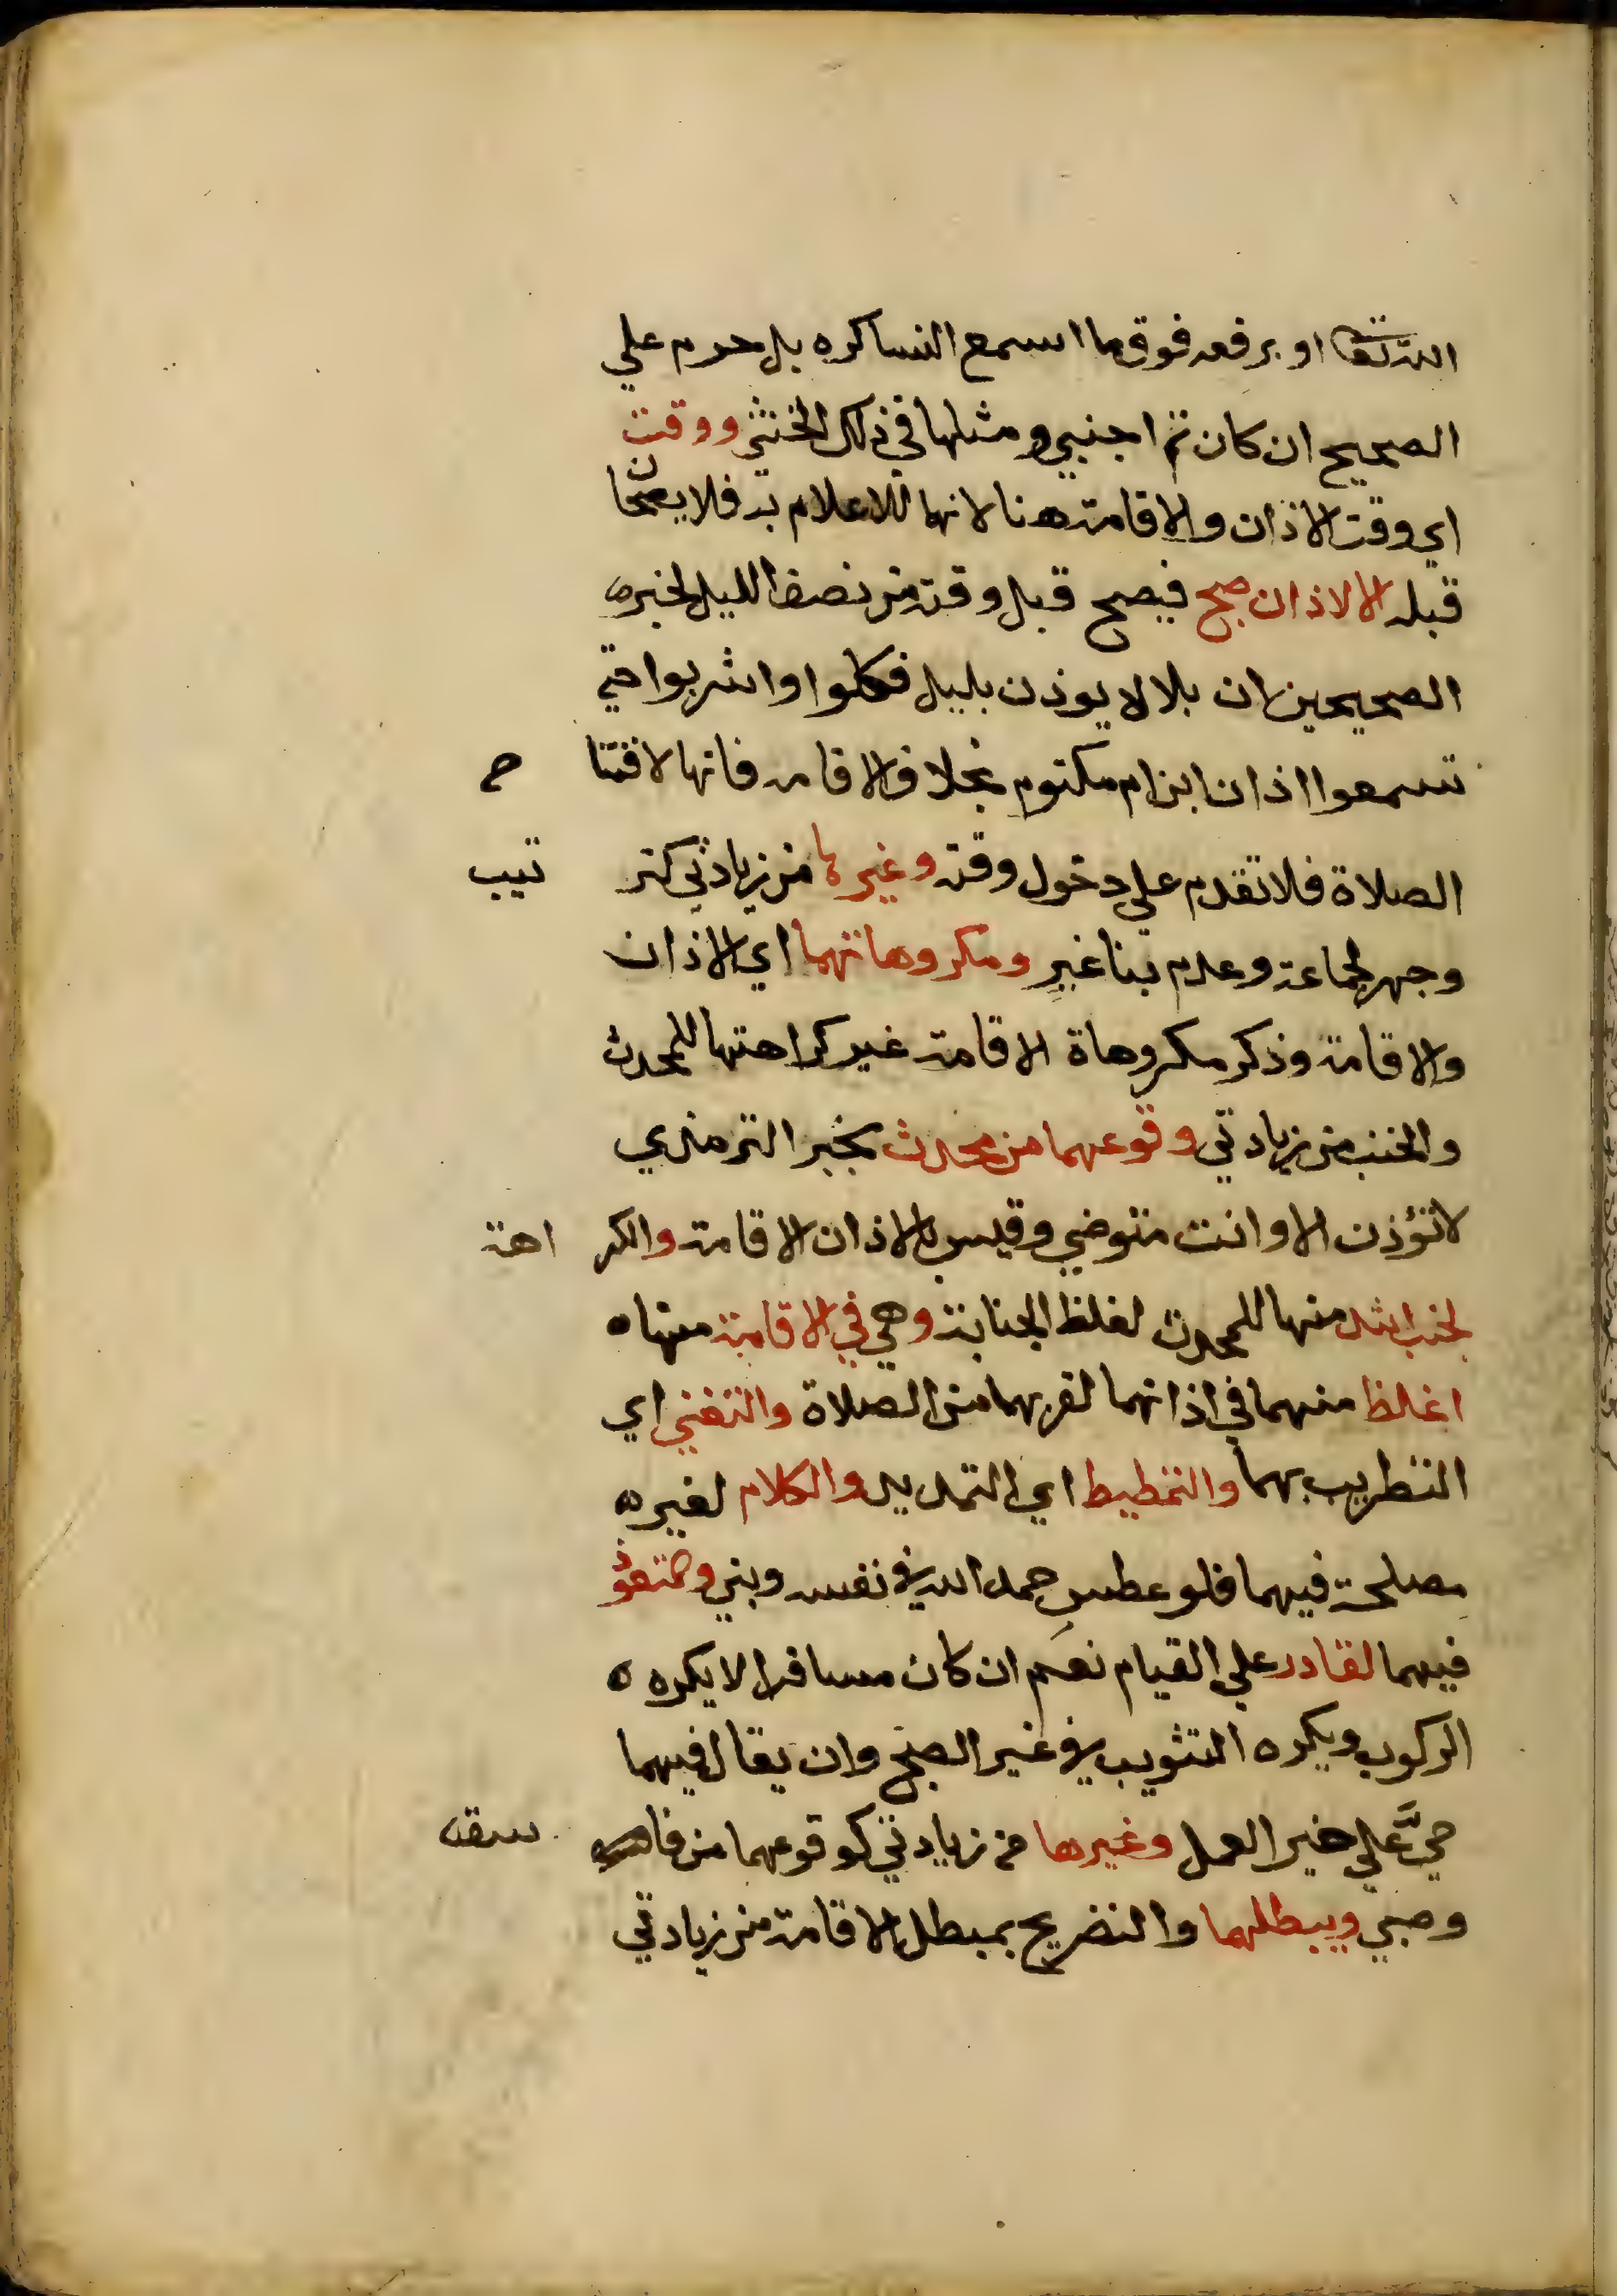 الله تعا او برفعه فوق ما اسمع النسا كره بل حرم علي
الصحيح ان كان ثم اجنبي ومثلها في ذلك الخنثي ووقت
اي وقت الاذان والاقامة هنا لانها للاعلام به فلا يصحان
قبله الا الاذان صبح فيصح قبل وقته من نصف الليل لخبره
الصحيحين ان بلالا يوذن بليل فكلوا واشربوا حتي
تسمعوا اذان ابن ام مكتوم بخلاف الاقامه فانها لافتتا ح
الصلاة فلا تقدم علي دخول وقته وغيرها من زيادتي كتر تيب
وجهر لجماعة وعدم بنا غير ومكروهاتهما اي الاذان
والاقامة وذكر مكروهاة الاقامة غير كراهتها للمحدث
والجنب من زيادتي وقوعهما من محدث بخبر الترمذي
لا تؤذن الا وانت متوضي وقيس بالاذان الاقامة والكر اهة
لجنب اشد منها للمحدث لغلظ الجنابة وهي في الاقامة منها ه
اغلظ منهما في اذانهما لقربهما من الصلاة والتغني اي
التطريب بهما والتمطيط اي التمديد والكلام لغير ه
مصلحة فيهما فلو عطس حمد الله في نفسه وبني وقعود
فيهما لقادر علي القيام نعم ان كان مسافرا لا يكره ه
الركوب ويكره التثويب في غير الصبح وان يقال فيهما
حيَّ علي خير العمل وغيرها من زيادتي كوقوعهما من فا سق
وصبي ويبطلهما والتصريح بمبطل الاقامة من زيادتي